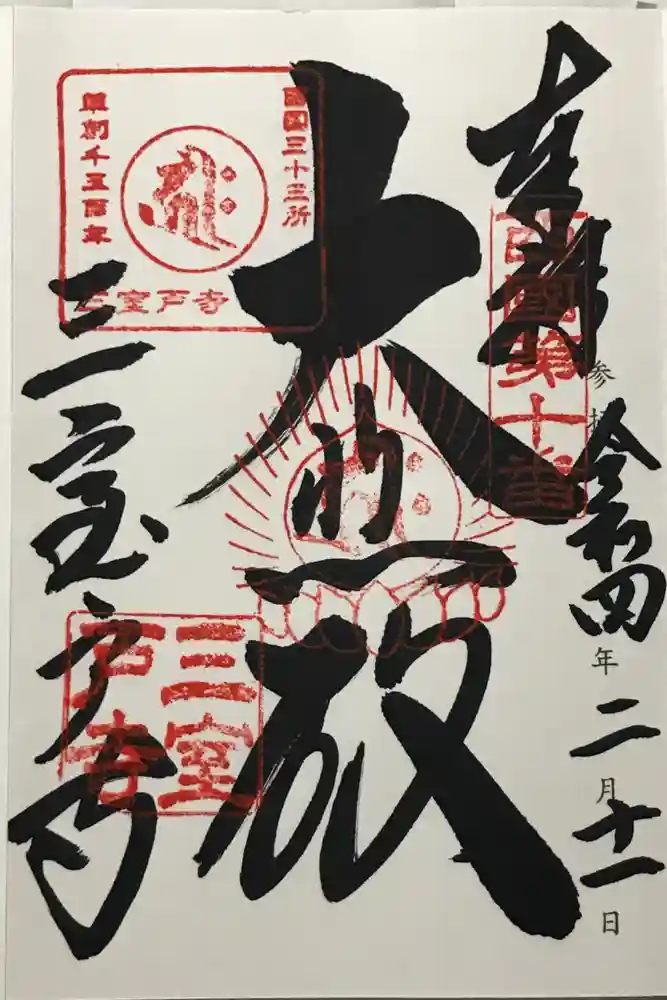 奉拝
西國第十番
参拝
令和四年二月十一日
大悲殿
西国三十三所
草創千三百年
三室戸寺
三室戸寺
三室戸寺